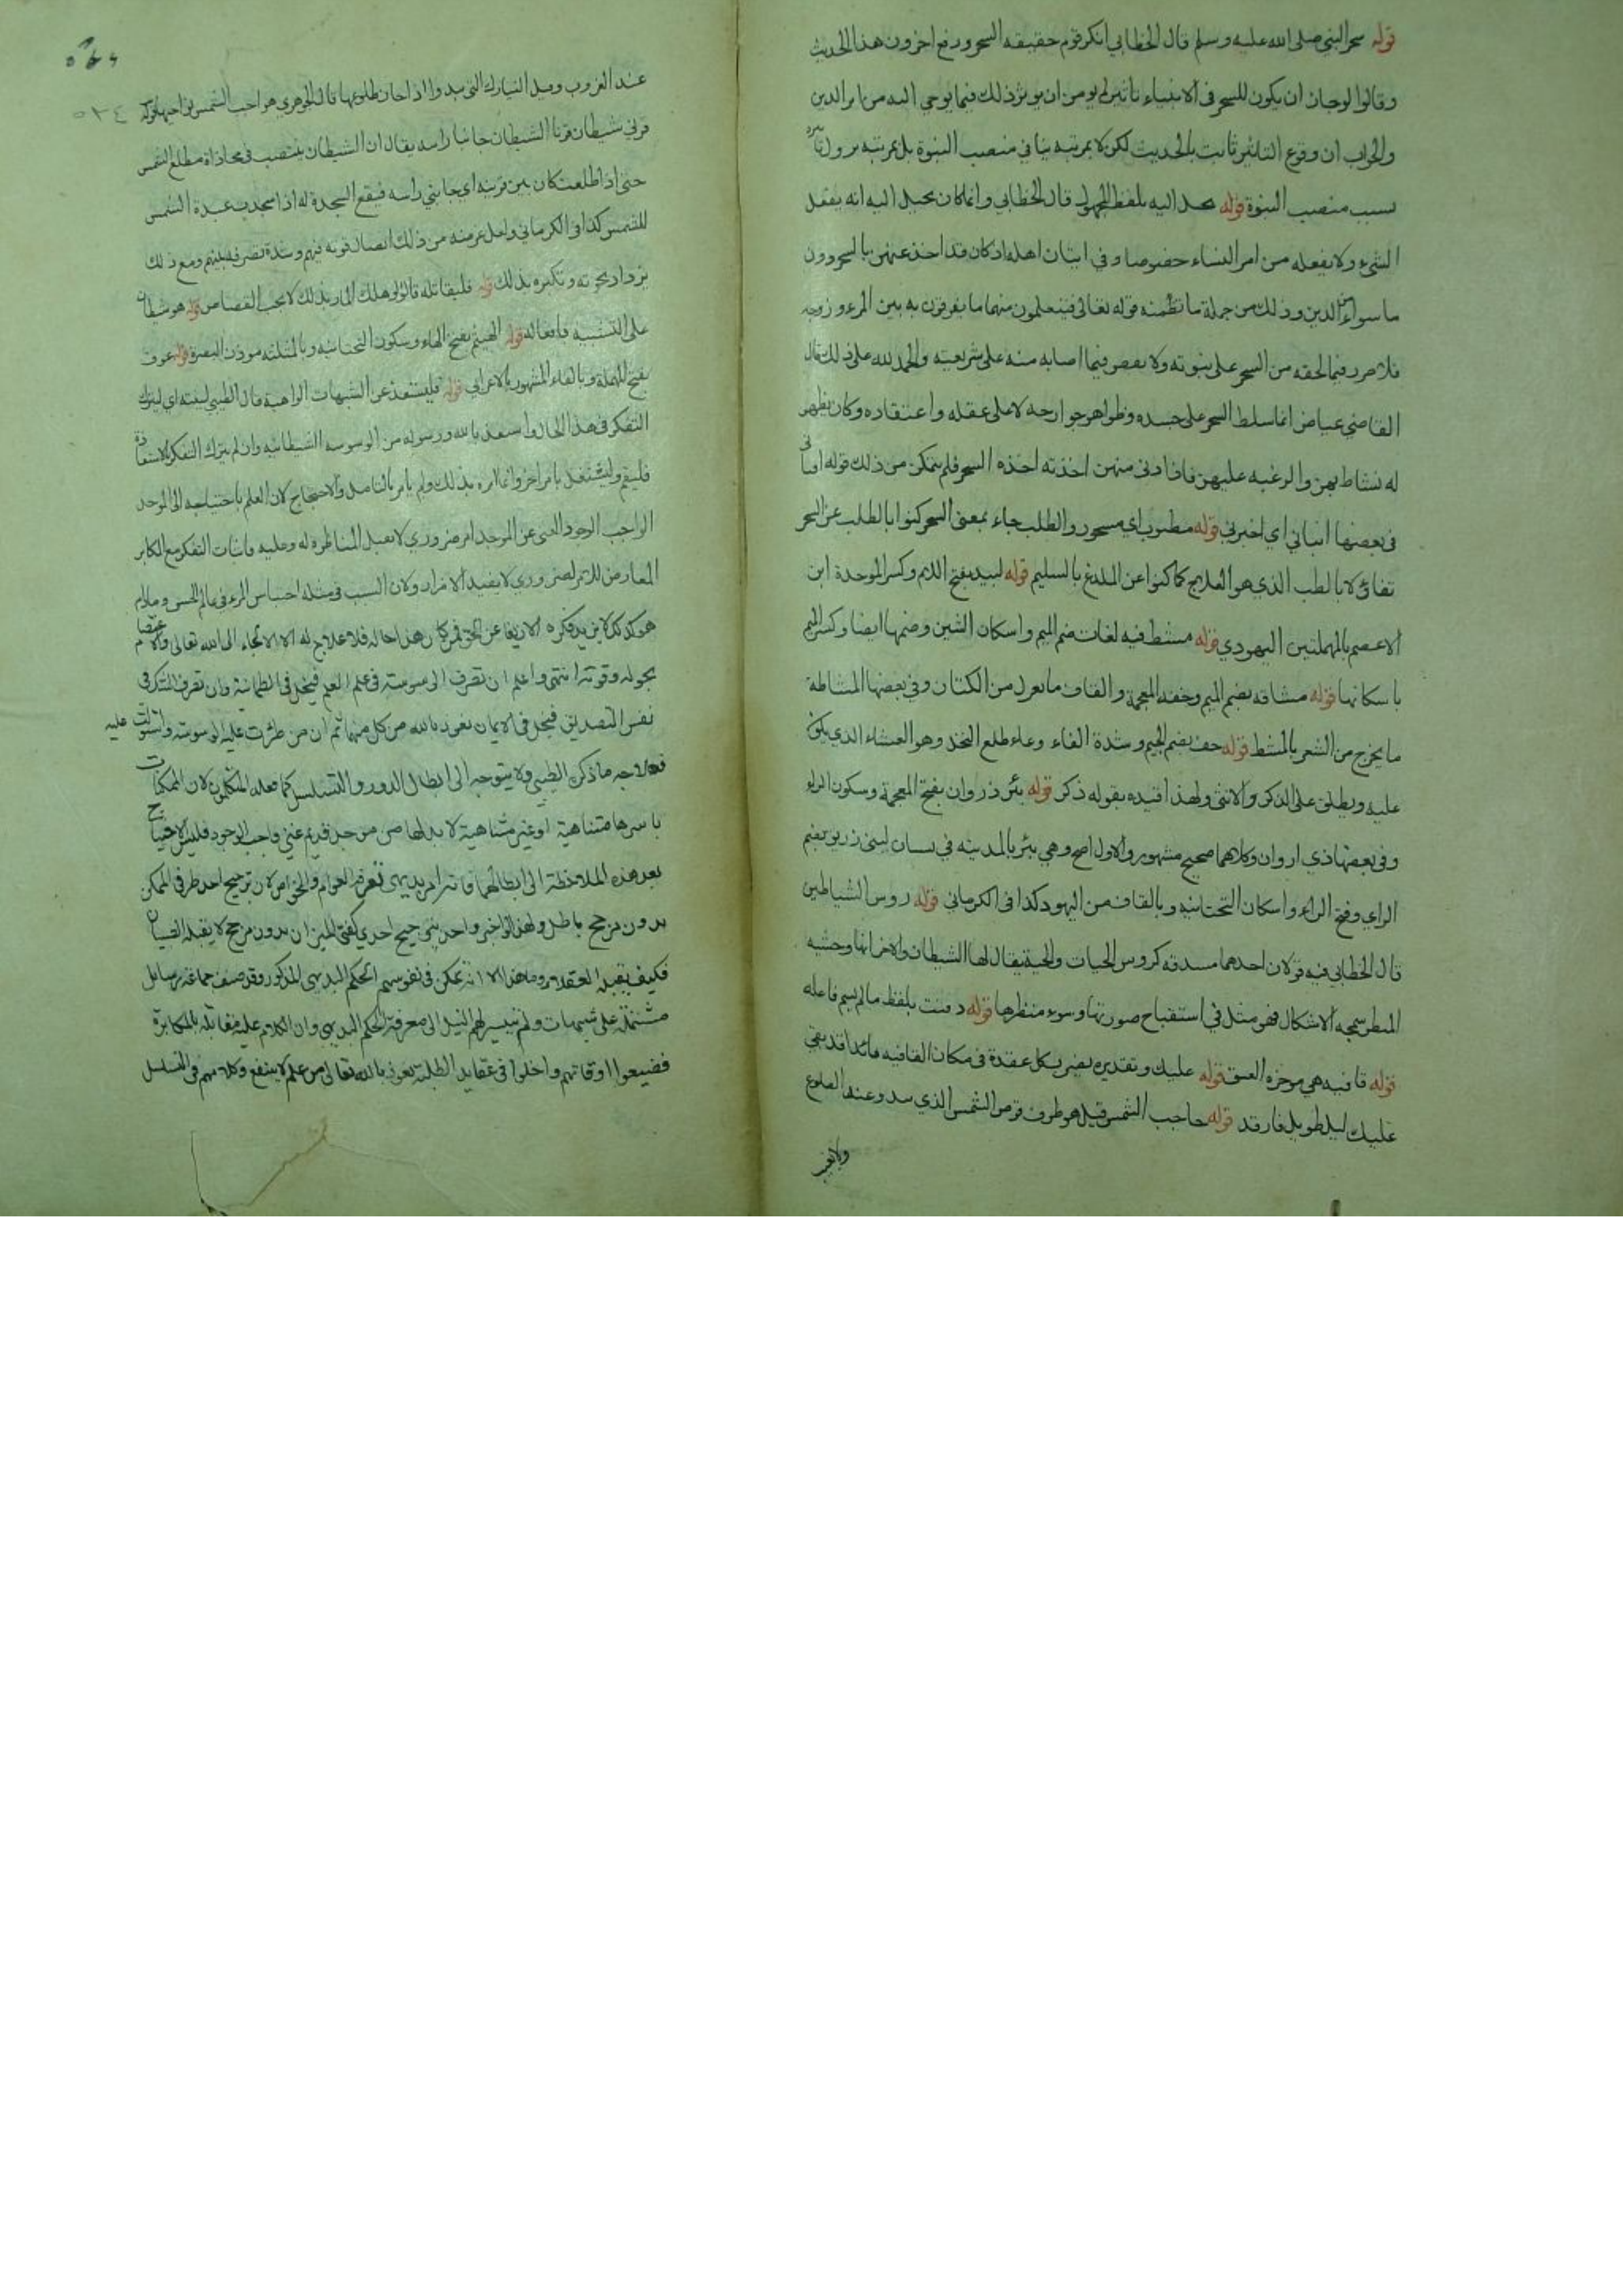 قوله سحر النبي صلى الله عليه وسلم قال الخطابي انكر قوم حقيقة السحر ودفع اخرون هذا الحديث
وقالوا لو جاز ان يكون للسحر في الانبياء تاثير لم يومن ان يوثر ذلك فيما يوحي اليه من امر الدين
والجواب ان وقوع التاثير ثابت بالحديث لكن لا بمرتبة ينافي منصب النبوة بل بمرتبة
بسبب منصب النبوة قوله يخيل اليه بلفظ المجهول قال الخطابي وانما كان يخيل اليه انه يفعل
الشيء ولا يفعله من امر النساء خصوصا وفي اتيان اهله اذ كان قد اخذ عنهن بالسحر دون
ما سواه من الدين وذلك من جملة ما تضمنه قوله تعالى فيتعلمون منهما ما يفرقون به بين المرء وزوجه
فلا ضرر فيما لحقه من السحر على نبوته ولا نقص فيما اصابه منه على شريعته والحمد لله على ذلك قال
القاضي عياض انما سلط السحر على جسده وظواهر جوارحه لا على عقله واعتقاده وكان يظهر
له نشاط بهن والرغبة عليهن فاذا دنى منهن اخذته اخذة السحر فلم يتمكن من ذلك قوله افتاني
في بعضها انباني اي اخبرني قوله مطبوب اي مسحور والطلب جاء بمعنى السحر كنوا بالطلب عن السحر
تفاؤلا بالطب الذي هو العلاج كما كنوا عن اللديغ بالسليم قوله لبيد بفتح اللام وكسر الموحدة ابن
الاعصم بالمهملتين اليهودي قوله مشط فيه لغات ضم الميم واسكان الشين وضمها ايضا وكسر الميم
باسكانها قوله مشاقة بضم الميم وخفة المعجمة والقاف ما يغزل من الكتان وفي بعضها المشاطة
ما يخرج من الشعر بالمشط قوله جف بضم الجيم وشدة الفاء وعاء طلع النخل وهو الغشاء الذي يكون
عليه ويطلق على الذكر والانثى ولهذا قيده بقوله ذكر قوله بئر ذروان بفتح المعجمة وسكون الراو
وفي بعضها ذي اروان وكلاهما صحيح مشهور والاول اصح وهي بئر بالمدينة في بستان لبني زريق بضم
الزاي وفتح الراء واسكان التحتانية وبالقاف من اليهود كذا في الكرماني قوله روس الشياطين
قال الخطابي فيه قولان احدهما مسدقة كروس الحيات والحية يقال لها الشيطان والاخر انها وحشية
المنظر سمجة الاشكال فهو مثل في استقباح صورتها وسوء منظرها قوله دفنت بلفظ ما لم يسم فاعله
قوله قافية هي موخرة العنق قوله عليك وتقديره يضرب كل عقدة في مكان القافية قائلا قد بقي
عليك ليل طويل فارقد قوله حاجب الشمس قيل هو طرف قرص الشمس الذي يبدو عند الطلوع
ولا يغيب
٥٣٤
عند الغروب وقيل النيازك التي تبدوا اذا حان طلوعها قال الجوهري حواجب الشمس نواحيها قوله
قرني شيطان قرنا الشيطان جانبا راسه يقال ان الشيطان ينتصب في محاذاة مطلع الشمس
حتى اذا طلعت كان بين قرنيه اي جانبي راسه فيقع السجدة له اذا سجدت عبدة الشمس
للشمس كذا في الكرماني ولعل غرضه من ذلك اتصال قوته فيهم وشدة تصرفه ومع ذلك
يزداد وتكبره بذلك قوله فليقاتله قالوا لو هلك المار بذلك لا يجب القصاص قوله هو شيطان
على التشبيه قوله الهيثم بفتح الهاء وسكون التحتانية وبالمثلثة موذن البصرة قوله عوف
بفتح المهملة وبالفاء المشهور بالاعرابي قوله فليستعذ عن الشبهات الواهية قال الطيبي لينته اي ليترك
التفكر في هذا الخاطر وليستعذ بالله ورسوله من الوسوسة الشيطانية وان لم يترك التفكر بالاستعاذة
فليقم وليشتغل بامر اخر وانما امره بذلك ولم يامر بالتامل والاحتجاج لان العلم باحتياجه الى الموجد
الواجب الوجود الغني عن الموجد امر ضروري لا يقبل المناظرة له وعليه واثبات التفكر مع المكابر
المعارض للامر الضروري لا يفيد الا مرارا ولان السبب في مثله احتباس المرء في عالم الحس ومادام
هو كذلك لا يزيد فكره الا زيغا عن الحق فمن كان هذا حاله فلا علاج له الا الالتجاء الى الله تعالى والاعتصام
بحوله وقوته انتهى واعلم ان تصرف الوسوسة في علم العلم فيخل في الطمانية وان تصرف الشك في
نفس التصديق فيخل في الايمان نعوذ بالله من كل منهما ثم ان من طرات عليه الوسوسة واستولت عليه
فعلاجه ما ذكره الطيبي ولا يتوجه الى ابطال الدور والتسلسل كما فعله المتكلمون لان الممكنات
باسرها متناهية او غير متناهية لا بد لها من موجد قديم غني واجب الوجود فليس الاحتياج
بعد هذه الملاحظة الى ابطالهما فانه امر بديهي تعرفه العوام والخواص لان ترجيح احد طرفي الممكن
بدون مرجح باطل ولهذا لو اخبر واحد بترجيح احدي كفتي الميزان بدون مرجح لا يقبله الصبيان
فكيف يقبله العقلاء وما هذا الا انه تمكن في نفوسهم الحكم البديهي المذكور وقد صنف جماعة رسايل
مشتملة على شبهات ولم تيسر لهم النيل الى معرفة الحكم البديهي وان الكلام عليه مقابلة بالمكابرة
فضيعوا اوقاتهم واخلوا في عقايد الطلبة نعوذ بالله تعالى من علم لا ينفع وكلامهم في التسلسل